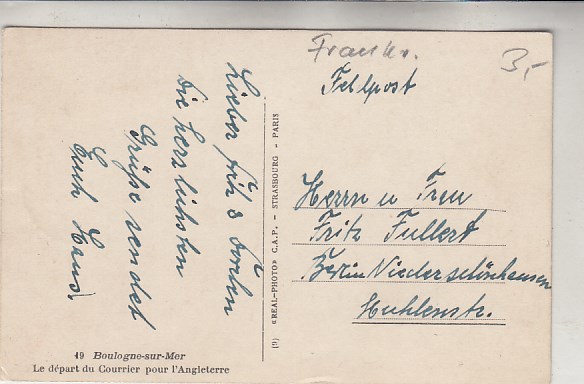 Frankr.
3,-
Feldpost
Lieber Fritz
die herzlichsten
Grüße sendet
Euch Hans.
Herrn u Frau
Fritz Fullert
Berlin Niederschönhausen
(9) «REAL-PHOTO» C.A.P. - STRASBOURG - PARIS
49 Boulogne-sur-Mer
Le départ du Courrier pour l'Angleterre